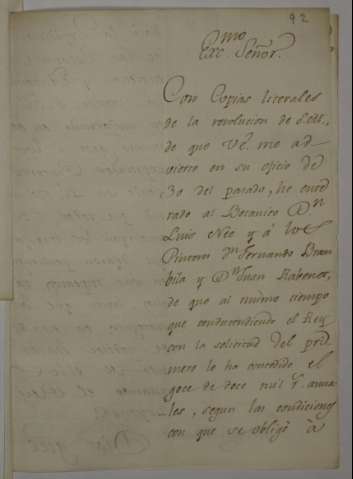 92
Exc.mo Señor.
Con Copias literales
de la resolucion de S.M.,
de que V.E. me ad
vierte en su oficio de
30 del pasado, he ente
rado al Botanico D.n
Luis Neé y á los
Pintores D.n Fernando Bram
bila y D.n Juan Rabenet,
de que al mismo tiempo
que condescendiendo el Rey
con la solicitud del pri
mero le ha concedido el
goce de doce mil r.s anua
les, segun las condiciones
con que se obligó á